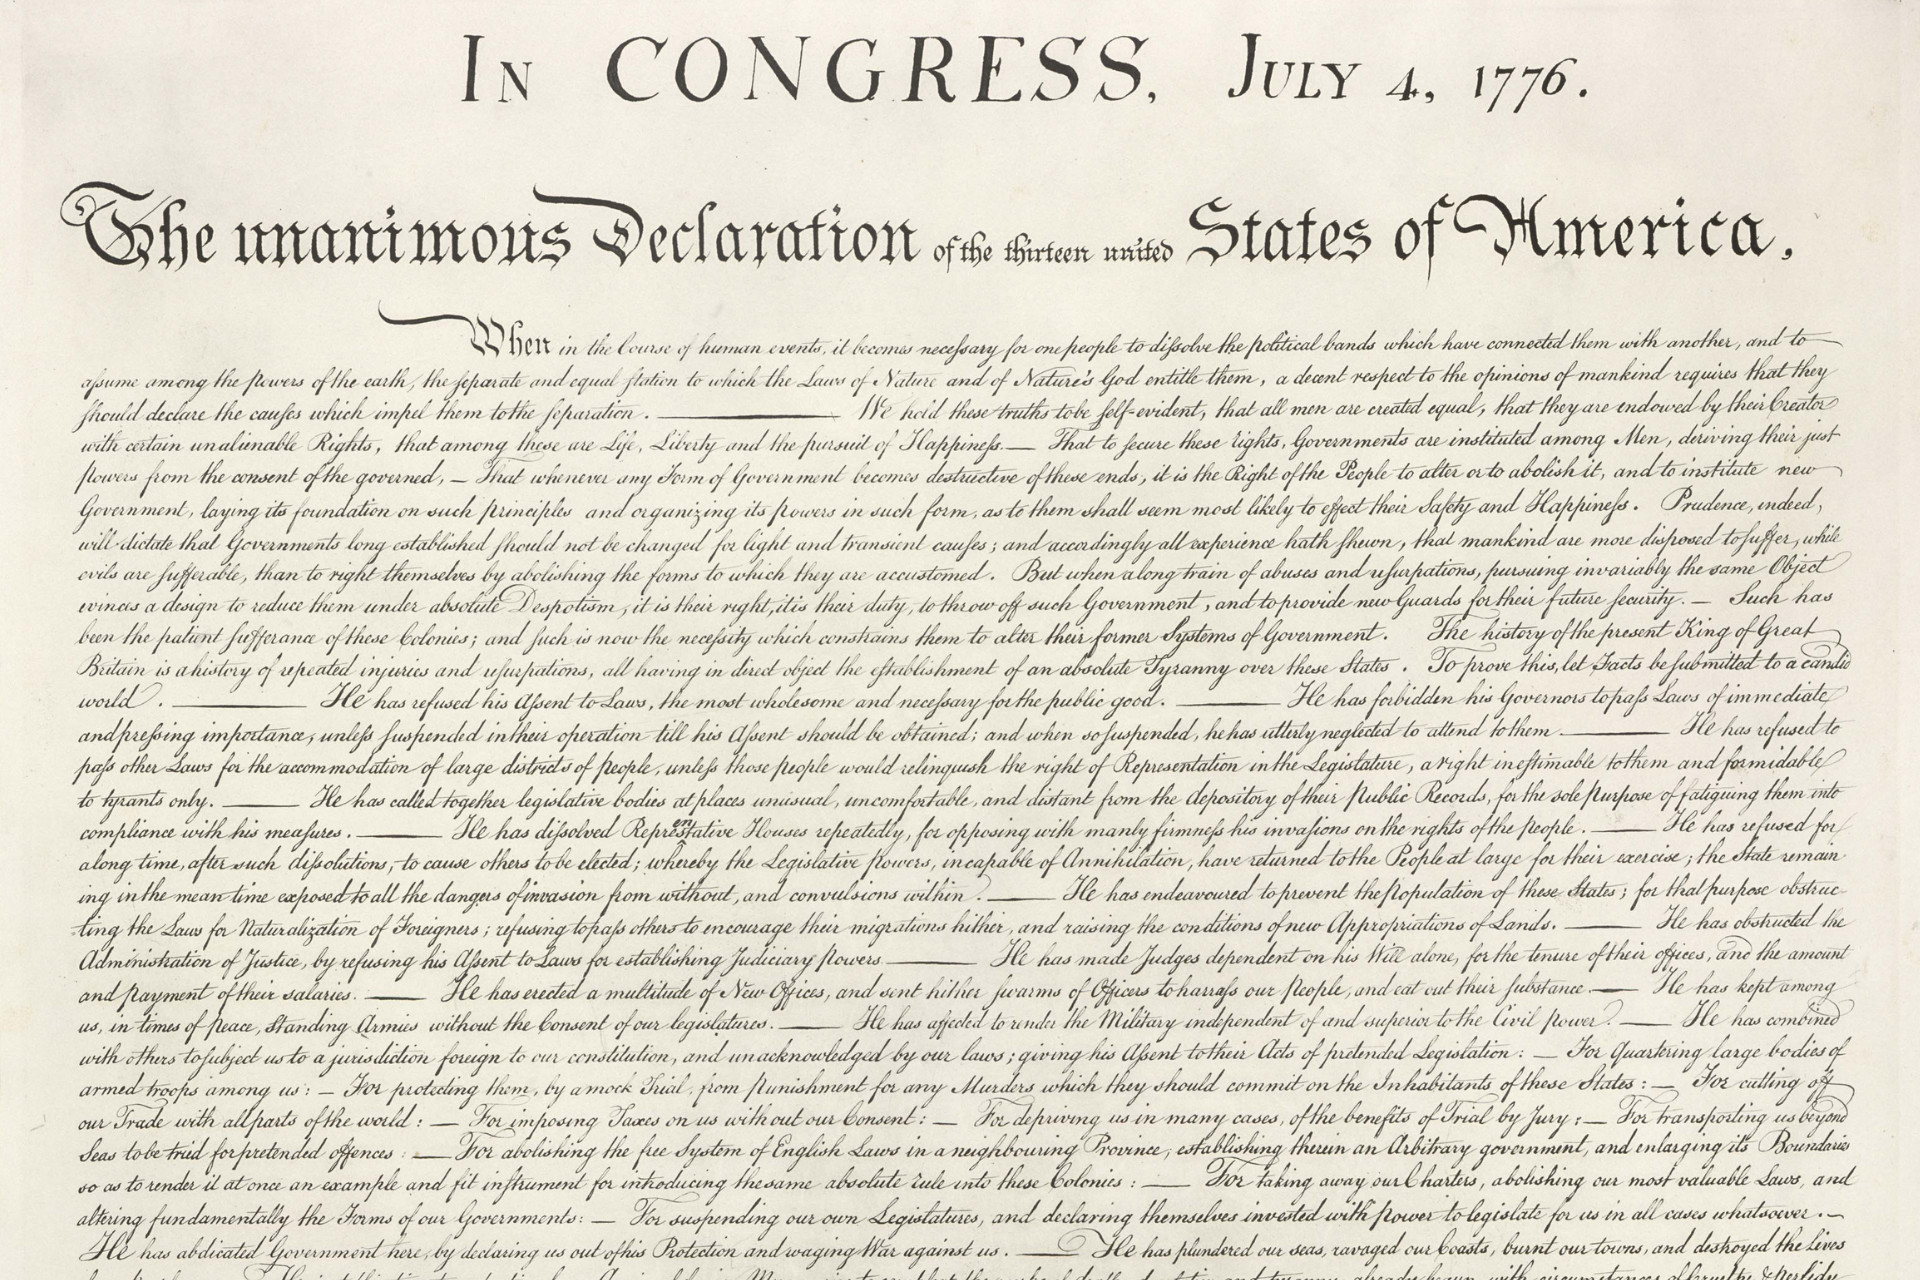 In CONGRESS, July 4, 1776.
The unanimous Declaration of the thirteen united States of America,
When in the Course of human events, it becomes necessary for one people to dissolve the political bands which have connected them with another, and to
assume among the powers of the earth, the separate and equal station to which the Laws of Nature and of Nature's God entitle them, a decent respect to the opinions of mankind requires that they
should declare the causes which impel them to the separation. ——— We hold these truths to be self-evident, that all men are created equal, that they are endowed by their Creator
with certain unalienable Rights, that among these are Life, Liberty and the pursuit of Happiness.— That to secure these rights, Governments are instituted among Men, deriving their just
powers from the consent of the governed, — That whenever any Form of Government becomes destructive of these ends, it is the Right of the People to alter or to abolish it, and to institute new
Government, laying its foundation on such principles and organizing its powers in such form, as to them shall seem most likely to effect their Safety and Happiness. Prudence, indeed,
will dictate that Governments long established should not be changed for light and transient causes; and accordingly all experience hath shewn, that mankind are more disposed to suffer, while
evils are sufferable, than to right themselves by abolishing the forms to which they are accustomed. But when a long train of abuses and usurpations, pursuing invariably the same Object
evinces a design to reduce them under absolute Despotism, it is their right, it is their duty, to throw off such Government, and to provide new Guards for their future security. — Such has
been the patient sufferance of these Colonies; and such is now the necessity which constrains them to alter their former Systems of Government. The history of the present King of Great
Britain is a history of repeated injuries and usurpations, all having in direct object the establishment of an absolute Tyranny over these States. To prove this, let Facts be submitted to a candid
world. ——— He has refused his Assent to Laws, the most wholesome and necessary for the public good. ——— He has forbidden his Governors to pass Laws of immediate
and pressing importance, unless suspended in their operation till his Assent should be obtained; and when so suspended, he has utterly neglected to attend to them. ——— He has refused to
pass other Laws for the accommodation of large districts of people, unless those people would relinquish the right of Representation in the Legislature, a right inestimable to them and formidable
to tyrants only. ——— He has called together legislative bodies at places unusual, uncomfortable, and distant from the depository of their Public Records, for the sole purpose of fatiguing them into
compliance with his measures. ——— He has dissolved Representative Houses repeatedly, for opposing with manly firmness his invasions on the rights of the people. ——— He has refused for
a long time, after such dissolutions, to cause others to be elected; whereby the Legislative powers, incapable of Annihilation, have returned to the People at large for their exercise; the State remain
ing in the mean time exposed to all the dangers of invasion from without, and convulsions within. ——— He has endeavoured to prevent the population of these States; for that purpose obstruc-
ting the Laws for Naturalization of Foreigners; refusing to pass others to encourage their migrations hither, and raising the conditions of new Appropriations of Lands. ——— He has obstructed the
Administration of Justice, by refusing his Assent to Laws for establishing Judiciary powers ——— He has made Judges dependent on his Will alone, for the tenure of their offices, and the amount
and payment of their salaries. ——— He has erected a multitude of New Offices, and sent hither swarms of Officers to harrass our people, and eat out their substance. — He has kept among
us, in times of peace, Standing Armies without the Consent of our legislatures. ——— He has affected to render the Military independent of and superior to the Civil power. — He has combined
with others to subject us to a jurisdiction foreign to our constitution, and unacknowledged by our laws; giving his Assent to their Acts of pretended Legislation: — For Quartering large bodies of
armed troops among us: — For protecting them, by a mock Trial, from punishment for any Murders which they should commit on the Inhabitants of these States: — For cutting off
our Trade with all parts of the world: — For imposing Taxes on us without our Consent: — For depriving us in many cases, of the benefits of Trial by Jury: — For transporting us beyond
Seas to be tried for pretended offences: — For abolishing the free System of English Laws in a neighbouring Province, establishing therein an Arbitrary government, and enlarging its Boundaries
so as to render it at once an example and fit instrument for introducing the same absolute rule into these Colonies: — For taking away our Charters, abolishing our most valuable Laws, and
altering fundamentally the Forms of our Governments: — For suspending our own Legislatures, and declaring themselves invested with power to legislate for us in all cases whatsoever. —
He has abdicated Government here, by declaring us out of his Protection and waging War against us. — He has plundered our seas, ravaged our Coasts, burnt our towns, and destroyed the Lives